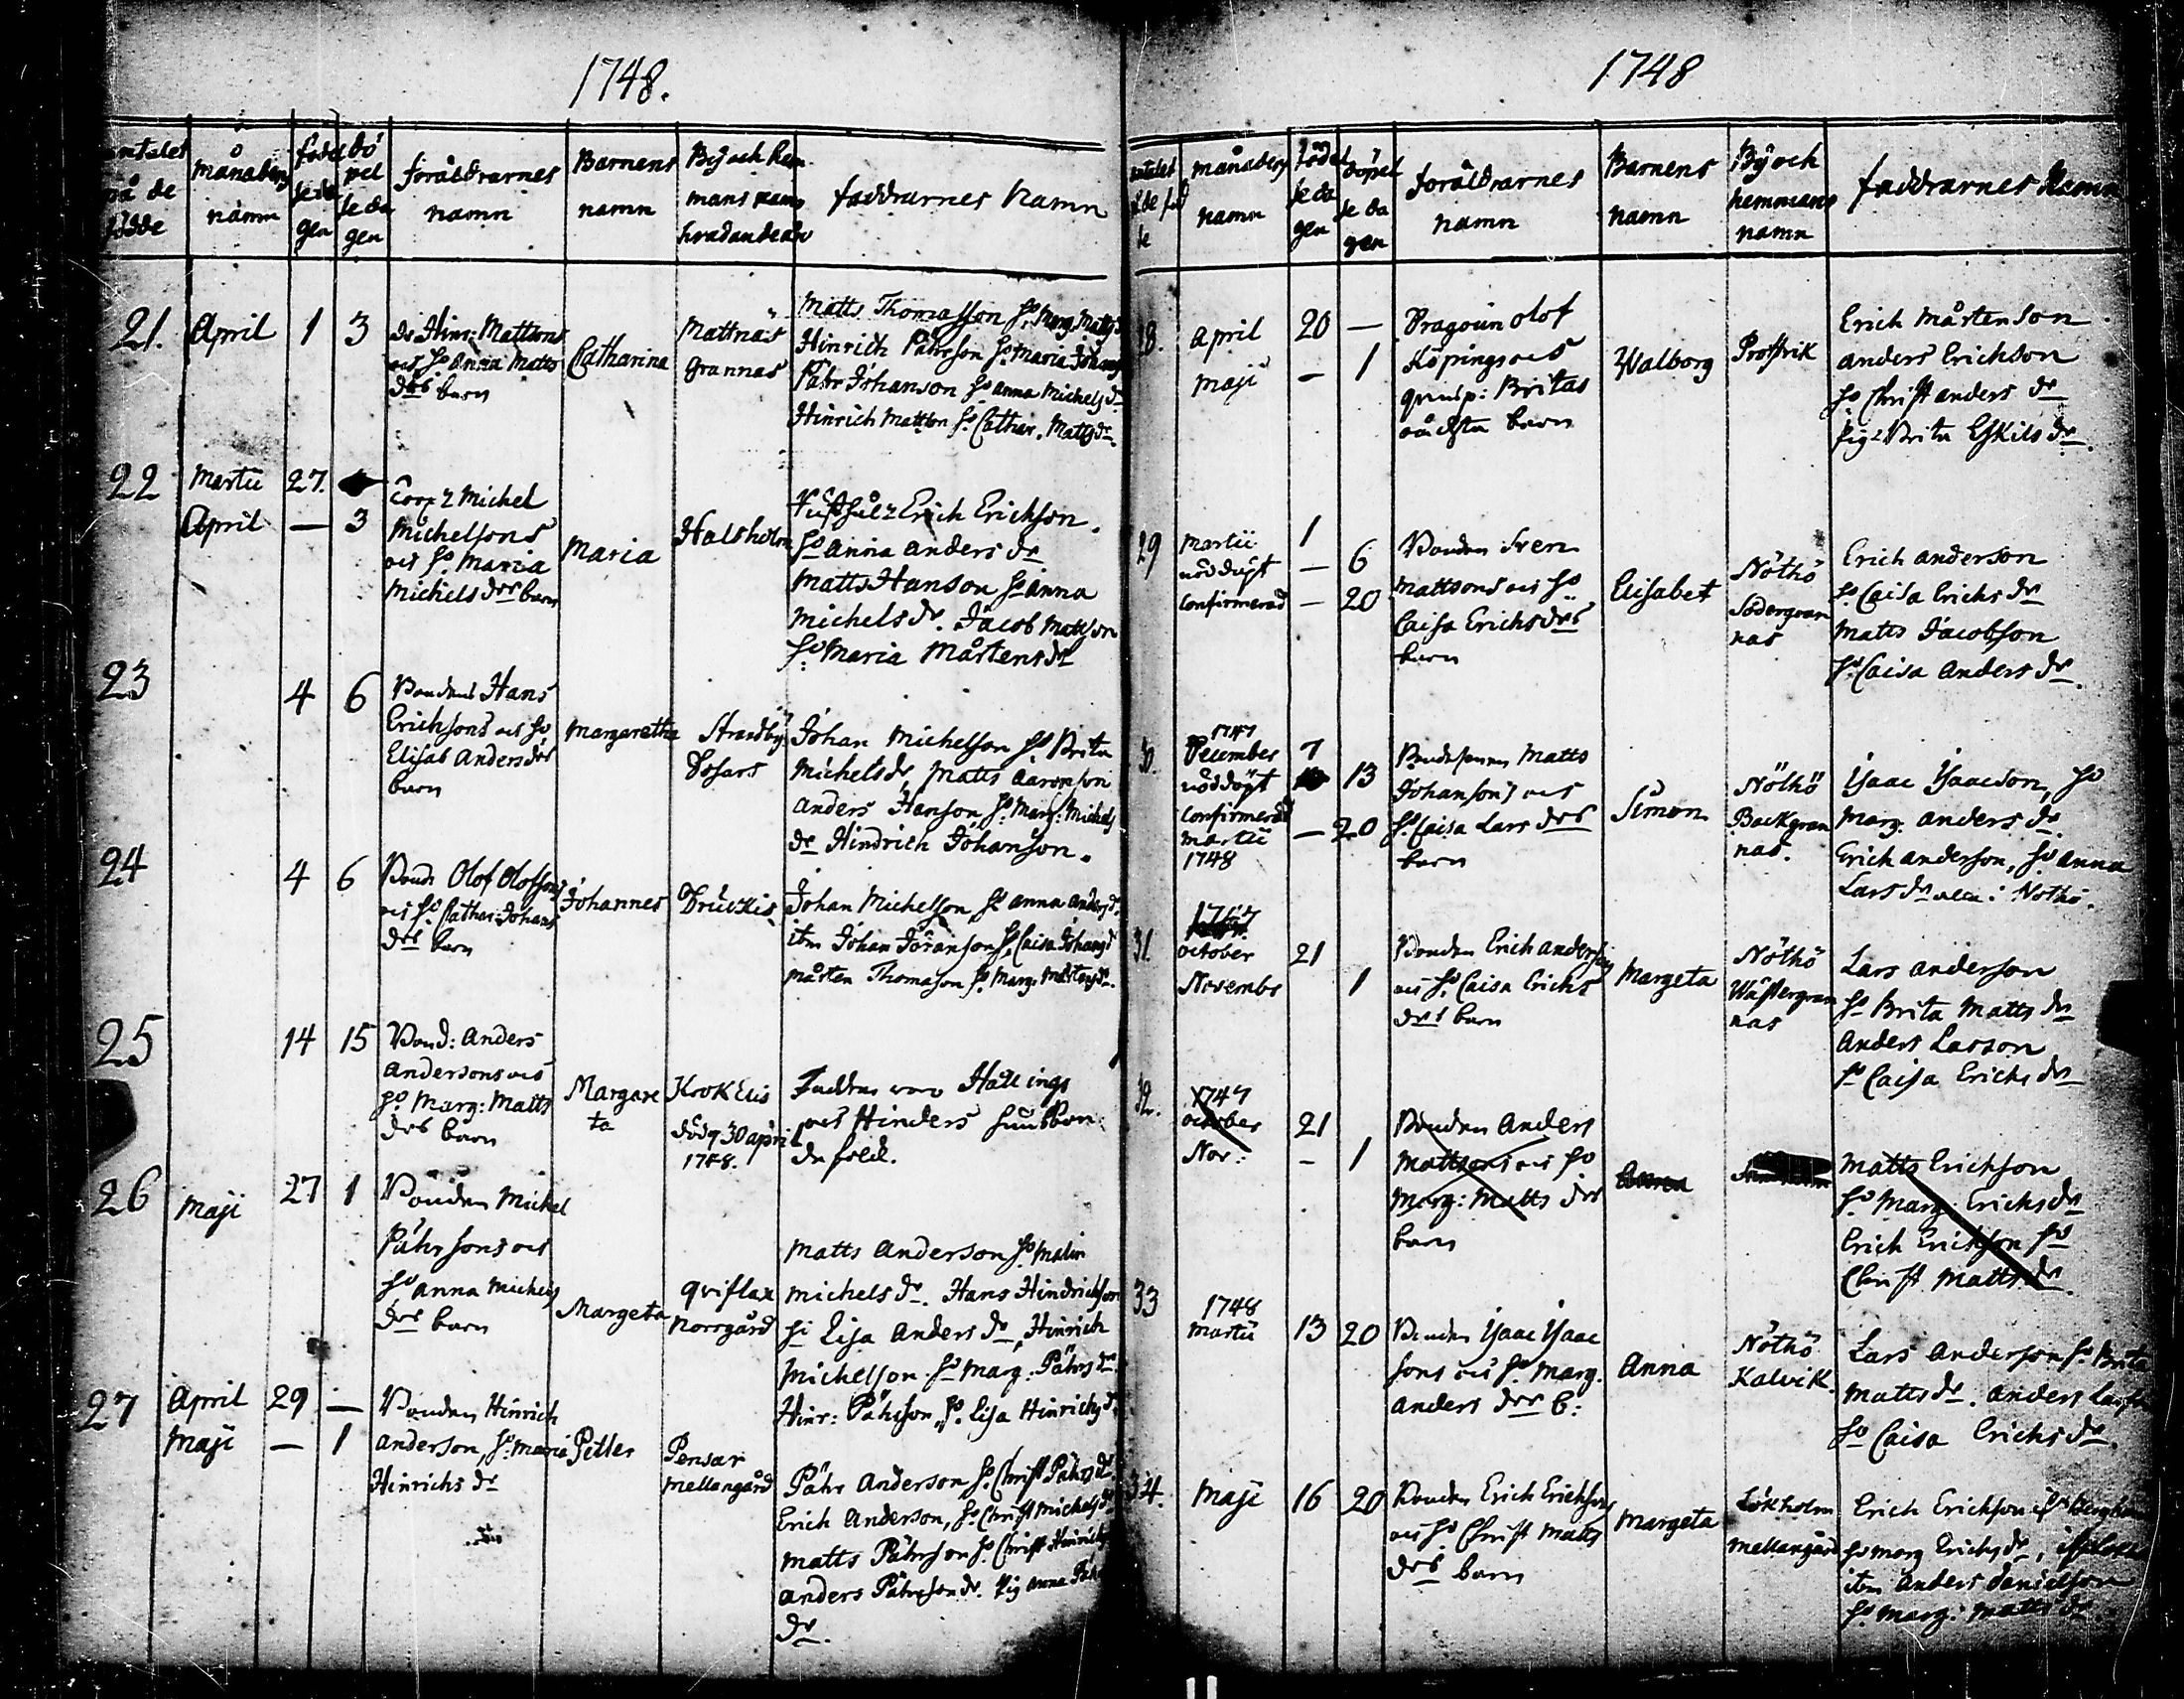 1748.
antalet
på de
födde
månadens
namn
födel
se da
gen
dö
pel
se da
gen
föräldrarnes
namn
Barnens
namn
By och hem
mans namn
faddrarnes Namn
21.
April
1
3
Hinr: Mattsons
och h: Anna Matts
drs barn
Catharina
Mattnäs
Grannas
Matts Thomasson h: Marg. Matts
Hinrich Påhrson h: Maria Johans
Påhr Johanson h: Anna Michels dr
Hinrich Mattson h: Cathar. Matts dr
22
Martii
27.
April
—
3
Corp: Michel
Michelsons
och h: Maria
Michels drs barn
Maria
Halsholm
Erich Erichson
h: Anna Anders dr
Matts Hanson h: Anna
Michels dr. Jacob Mattson
h: Maria Mårtens dr
23
4
6
Bondens Hans
Erichsons och h:
Elisab Anders drs
barn
Margaretha
Strandby
Johan Michelson h: Brita
Michels dr, Matts Aaronson
Anders Hanson h: Marg: Michels
dr Hindrich Johanson.
24
4
6
Bond: Olof Olofsons
och h: Cathar: Johans
drs barn
Johannes
Druckis
Johan Michelson h: Anna Anders dr
itm Johan Joranson h: Caisa Johans d
Mårten Thomason h: Marg: Mårtens dr.
25
14
15
Bond: Anders
Andersons och
h: Marg: Matts
drs barn
Margare
ta
Krok Elis
död 30 april
1748.
Faddrar woro Hällings
och Hinders
26
Maji
27
1
Bonden Michel
Påhrsons och
h: Anna Michels
drs barn
Margeta
Qviflax
Norrgård
Matts Anderson h: Malin
Michels dr. Hans Hindrichson
h: Lisa Anders dr, Hinrich
Michelson h: Marg: Påhrs dr
Hinr: Påhrson, h: Lisa Hinrichs d.
27
April
29
—
Maji
—
1
Bonden Hinrich
Anderson, h: Maria
Hinrichs dr
Petter
Pensar
Mellangård
Påhr Anderson h: Christ Påhrs dr
Erich Anderson, h: Christ Michels dr
Matts Påhrson h: Christ Hinrichs
Anders Påhrson dr. Pig Anna Påhr
dr.
1748
antalet
månadens
namn
födel
se da
gen
döpel
se da
gen
föräldrarnes
namn
Barnens
namn
By och
hemmans
namn
faddrarnes Namn
28.
April
20
—
Maji
—
1
Dragoun Olof
Köpings och
Britas
barn
Walborg
Prostvik
Erich Mårtenson
Anders Erichson
h: Christ Anders dr
Pig: Brita Eskils dr
29
Martii
1
nöddöpt
—
6
Confirmerad
—
20
Bonden Sven
Mattsons och h:
Caisa Erichs drs
barn
Elisabet
Nöthö
Södergran
nas
Erich Anderson
h: Caisa Erichs dr
Matts Jacobson
h: Caisa Anders dr.
30.
1747
December
7
nöddöpt
13
Confirmerad
Martii
—
20
1748
Matts
Johansons och
h: Caisa Lars drs
barn
Simon
Nöthö
Backgran
nas.
Ysaac Ysaacson, h:
Marg. Anders dr.
Erich Anderson, h: Anna
Lars dr Nöthö.
31.
1747
October
21
Novembr
1
Bonden Erich Andersons
och h: Caisa Erichs
drs barn
Margeta
Nöthö
Wästergran
nas
Lars Anderson
h: Brita Matts dr
Anders Larson
h: Caisa Erichs dr
32.
1747
October
21
Nov:
-
1
Bonden Anders
Mattsons och h:
Marg: Matts drs
barn
Matts Erichson
h: Marg: Erichs dr
Erich Erichson h:
Christ Matts dr.
33
1748
Martii
13
20
Bonden Ysaac Ysaac
sons och h: Marg.
Anders drs b:
Anna
Nöthö
Kalvik.
Lars Anderson h: Brita
Matts dr. Anders Larson
h: Caisa Erichs dr.
34.
Maji
16
20
Bonden Erich Erichsons
och h: Christ Matts
drs barn
Margeta
Lökholm
Mellangård
Erich Erichson
h: Marg Erichs dr,
itm Anders Danielson
h: Marg: Matts dr